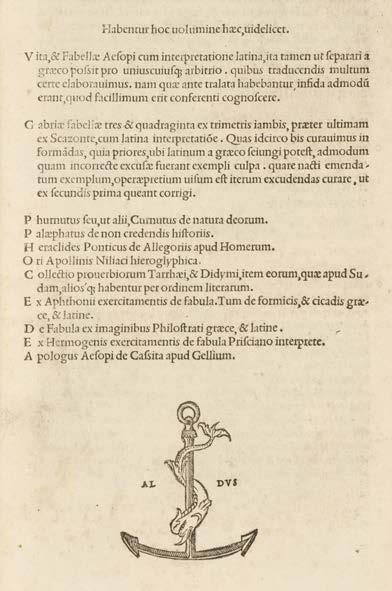 Habentur hoc uolumine hæc, uidelicet.
Vita, & Fabellæ Aesopi cum interpretatione latina, ita tamen ut separari a
græco possit pro uniuscuiusq; arbitrio. quibus traducendis multum
certe elaborauimus. nam quæ ante tralata habebantur, infida admodū
erant, quod facillimum erit conferenti cognoscere.
Gabriæ fabellæ tres & quadraginta ex trimetris iambis, præter ultimam
ex Scazonte, cum latina interpretatiōe. Quas idcirco bis curauimus in
formādas, quia priores, ubi latinum a græco seiungi potest, admodum
quam incorrecte excusæ fuerant exempli culpa. quare nacti emenda⸗
tum exemplum, operæpretium uisum est iterum excudendas curare, ut
ex secundis prima queant corrigi.
Phurnutus seu, ut alii, Curnutus de natura deorum.
Palæphatus de non credendis historiis.
Heraclides Ponticus de Allegoriis apud Homerum.
Ori Apollinis Niliaci hieroglyphica.
Collectio prouerbiorum Tarrhæi, & Didymi, item eorum, quæ apud Su⸗
dam, aliosq; habentur per ordinem literarum.
Ex Aphthonii exercitamentis de fabula. Tum de formicis, & cicadis græ⸗
ce, & latine.
De Fabula ex imaginibus Philostrati græce, & latine.
Ex Hermogenis exercitamentis de fabula Prisciano interprete.
Apologus Aesopi de Cassita apud Gellium.
AL DVS